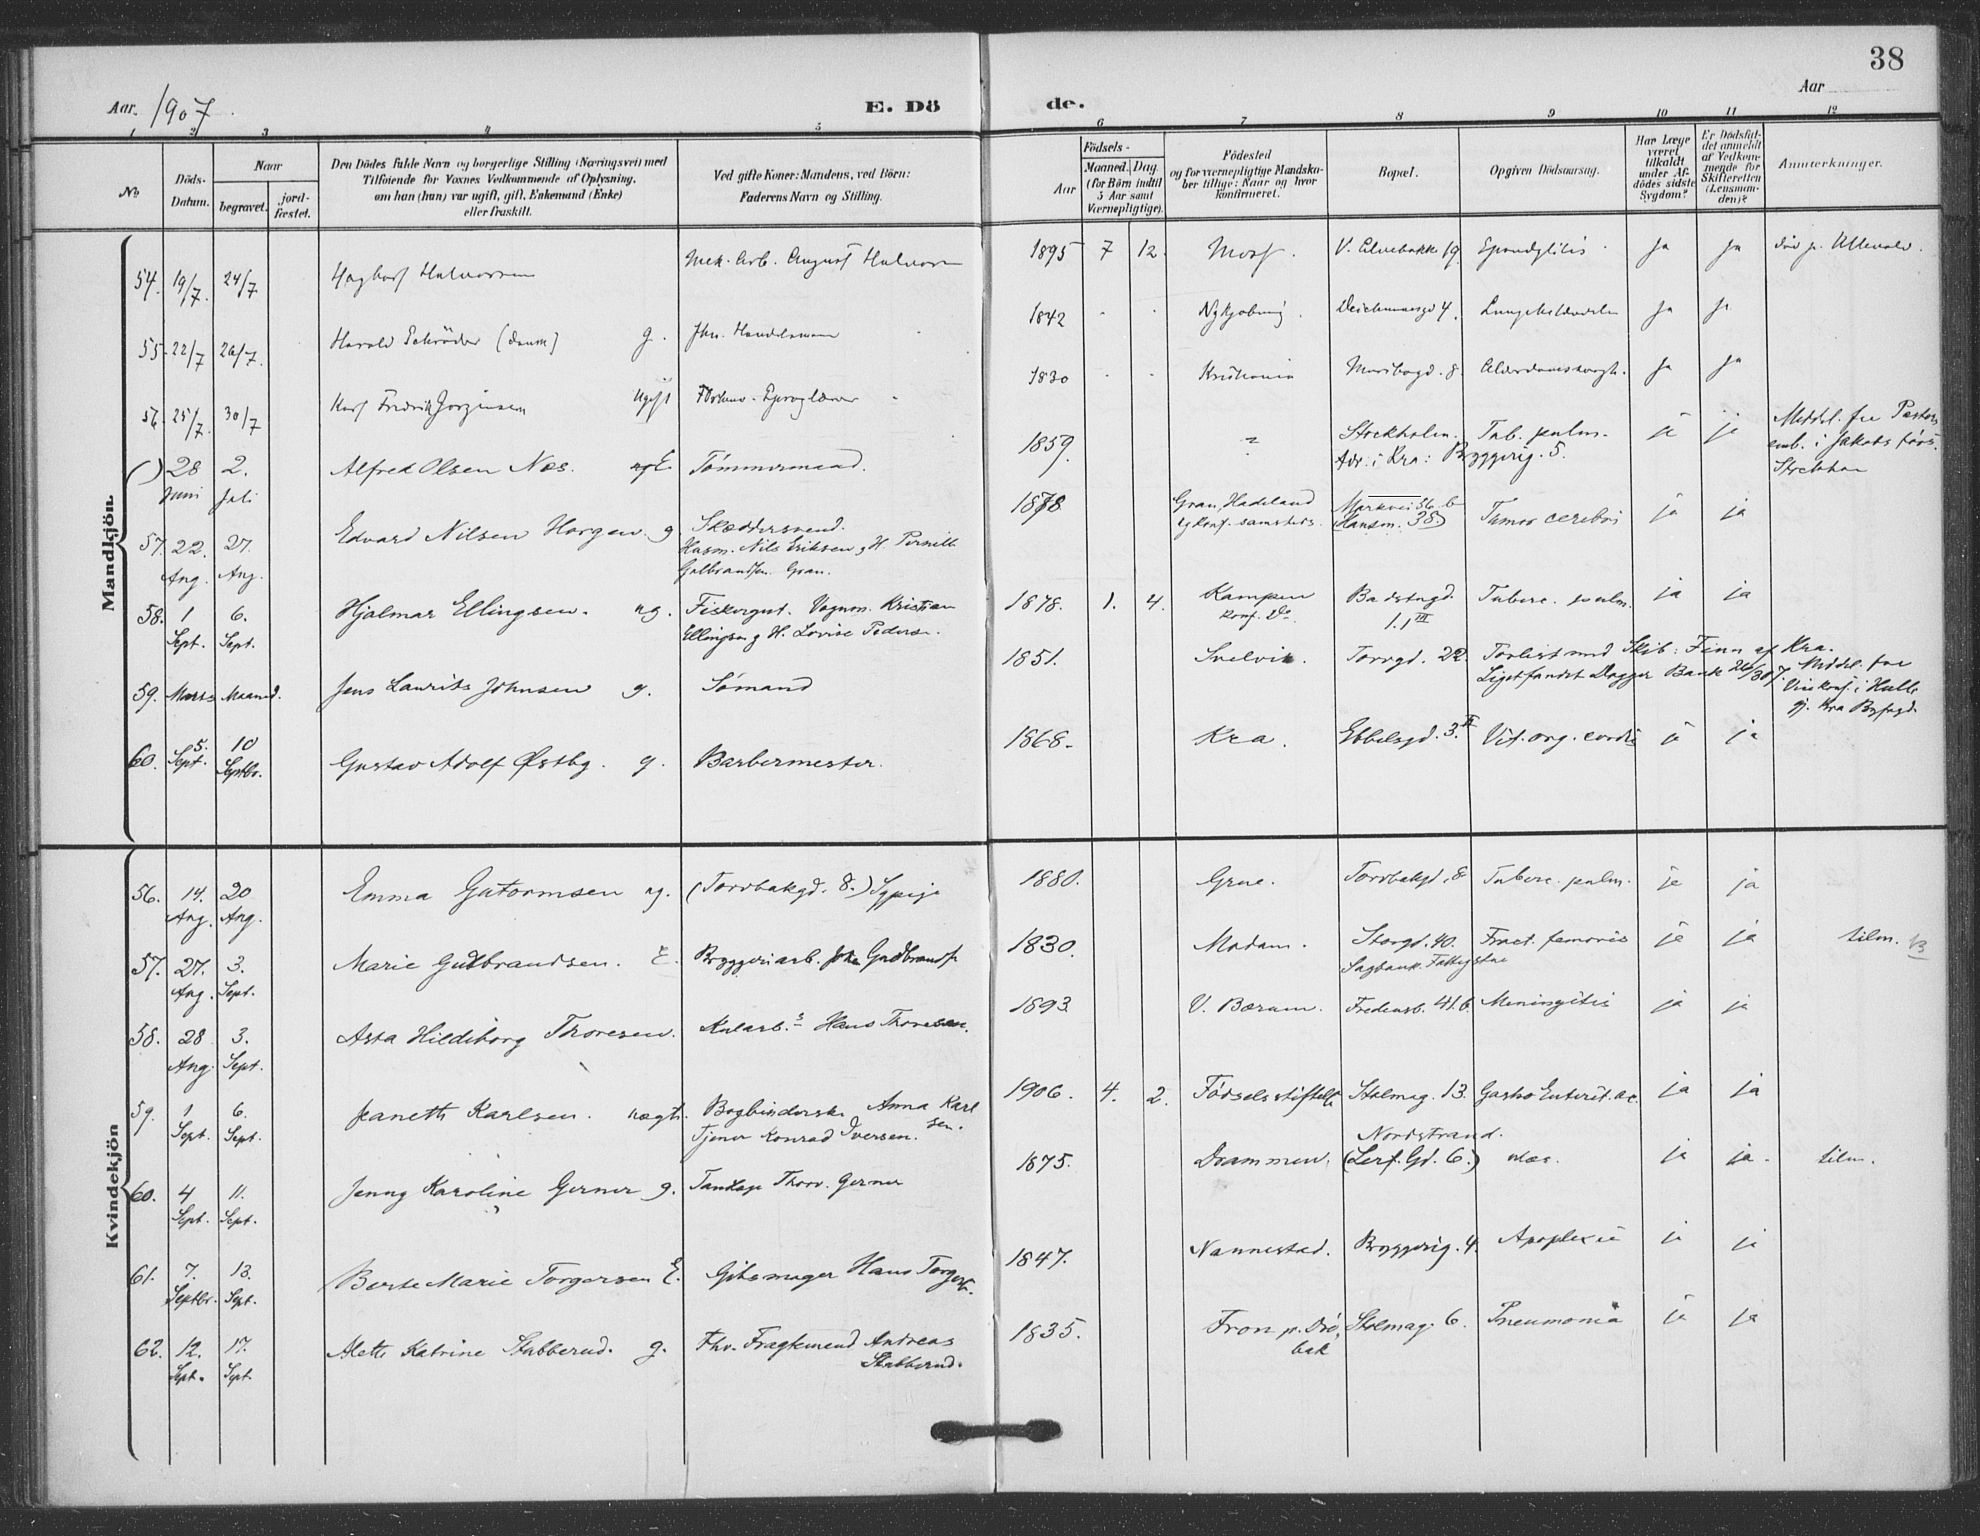 38
Aar. 1907 E. Dö de. Aar
1 2 3 4 5 6 7 8 9 10 11 12
No
Döds-Datum.
Naar
begravet.
jord-fæstet.
Den Dödes fulde Navn og borgerlige Stilling (Næringsvei) med
Tilföiende for Voxnes Vedkommende af Oplysning,
om han (hun) var ugift, gift, Enkemand (Enke)
eller fraskilt.
Ved gifte Koner: Mandens, ved Börn:
Faderens Navn og Stilling.
Födsels-
Aar
Maaned. Dag.
(for Börn indtil
5 Aar samt
Værnepligtige).
Födested
og for værnepligtige Mandska-
ber tillige: Naar og hvor
konfirmeret.
Bopæl.
Opgiven Dödsaarsag.
Har Læge
været
tilkaldt
under Af-
dödes sidste
Sygdom?
Er Dödsfal-
det anmeldt
af Vedkom-
mende for
Skifteretten
(Lensman-
den)?
Anmerkninger.
Mandkjön.
54. 19/7. 24/7 Halvorsen Mek. Arb. August Halvorsen 1895 7 12. Moss. V. Elvebakke 19. Spondylitis ja ja död p. Ullevold.
55. 22/7 26/7. Harald Schröder (dansk) g. Fhv. Handelsmand 1842 Nykjobing. Deichmansgd 4. ja ja
56. 25/7. 30/7 Karl Fredrik Jorginsen ugift Sproglærer 1830 Kristiania Maribogd. 8 ja ja
( ) 28 Juni 2. Juli Alfred Olsen Næs. Tömmermand. 1859. Stockholm. Adr. i Kra: Bryggerig. 5. Tub. pulm. ja ja Meddel. fra Pastors
emb. i Jakobs förs.
Stockholm
57. 22. Aug. 27. Aug. Edvard Nilsen Horgen. g. Skæddersvend.
Husm. Nils Eriksen g H. Pernille
Gulbrandsen. Gran. 1878 Gran, Hadeland
og konf. samsteds. Markvei 36 b
(Hansm. 38.) Tumor cerebri ja ja
58. 1 Sept. 6. Sept. Hjalmar Ellingsen. ug. Fiskergut. Vognm. Kristian
Ellingsen g H. Lovise Peders. 1878. 1. 4. Kampen
konf. do. Badstugd.
1. III Tuberc. pulm. ja ja
59. Marts Maaned. Jens Laurits Johnsen g. Sömand 1851. Svelvik. Torvgd. 22. Forlist med Skib: Finn af Kra.
Liget fundet Dogger Bank 26/30 7. Meddel. fra
Vicekonf. i Hull
gj. Kra Byfogd.
60. 5. Sept. 10 Septbr. Gustav Adolf Østbg. g. Barbermester. 1868. Kra. Ebbelsgd. 3. II Vit. org. cordis ja ja
Kvindekjön
56. 14. Aug. 20 Aug. Emma Gutormsen ug. (Torvbakgd. 8.) Sypige 1880. Grue. Torvbakgd. 8 Tuberc. pulm. ja ja
57. 27. Aug. 3. Sept. Marie Gulbrandsen. E. Bryggeriarb. Joh. Gudbrandsen 1830. Modum. Storgd. 40.
Sagbank. Fattigstue Fract. femoris ja ja tilm. 13
58. 28 Aug. 3. Sept. Asta Hildeborg Thoresen. Kularb.s Hans Thoresen. 1893 V. Bærum. Fredensb. 41.b. Meningitis ja ja
59. 1 Sept. 6. Sept. Jeanette Karlsen. uægt. Bogbinderske Anna Karlsen.
Tjener Konrad Iversen. 1906. 4. 2. Födselsstiftels Stolmag. 13. Gastro Enterit. ac. ja ja
60. 4 Sept. 11. Sept. Jenny Karoline Gerner g. Thorv. Gerner 1875. Drammen. Nordstrand.
(Gd. 6.) ja ja. tilm.
61. 7. Septbr. 13. Sept. Berte Marie Torgersen E. Gibsmager Hans Torgers. 1847. Nannestad. Bryggerig. 4. Apoplexie ja ja
62. 12. Sept. 17. Sept. Alette Katrine Stubberud. g. Fhv. Fragtemand Andreas
Stubberud. 1835. Fron p. Drö-
bak Stolmag. 6. Pneumonia ja ja